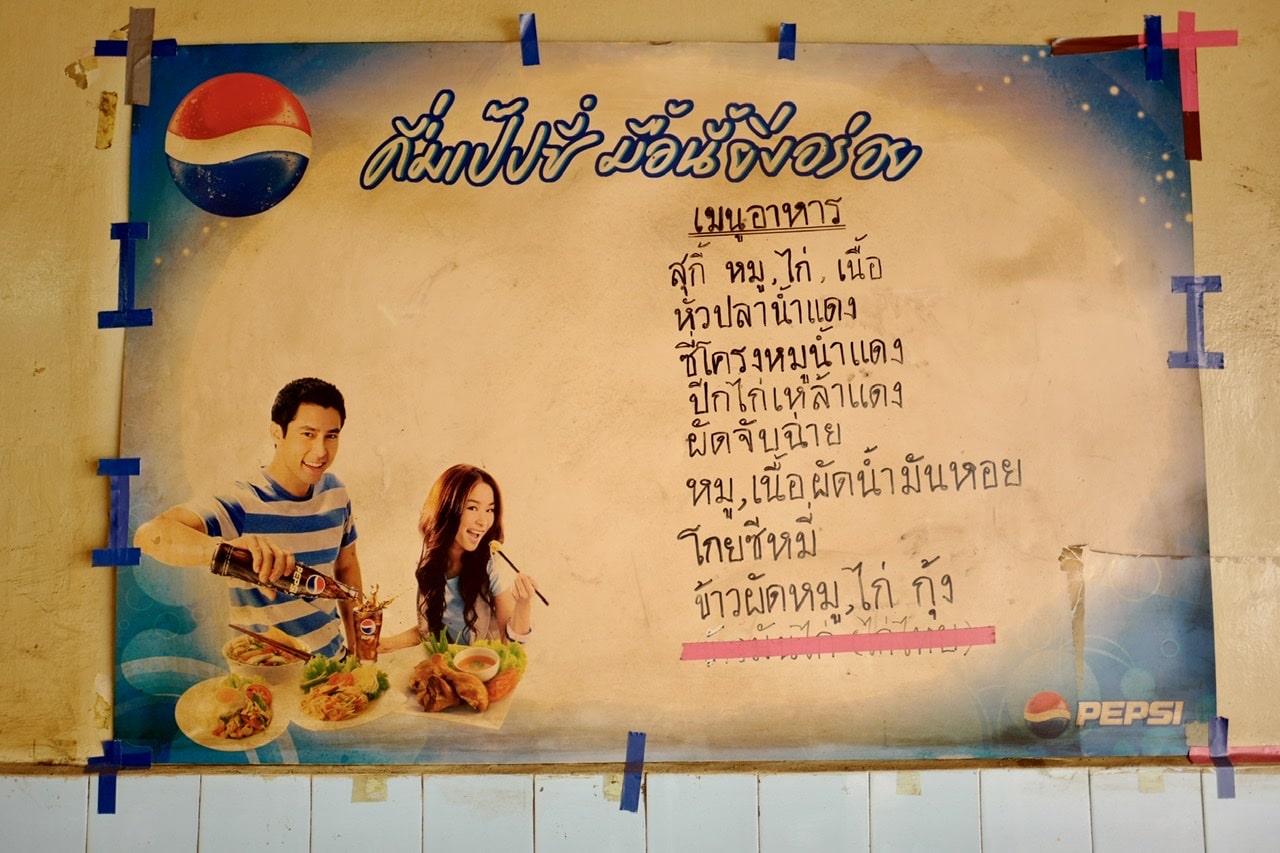 ดื่มเป๊ปซี่ มื้อนี้ยิ่งอร่อย
เมนูอาหาร
สุกี้ หมู, ไก่, เนื้อ
หัวปลาน้ำแดง
ซี่โครงหมูน้ำแดง
ปีกไก่เหล้าแดง
ผัดจับฉ่าย
หมู, เนื้อผัดน้ำมันหอย
โกยซีหมี่
ข้าวผัดหมู, ไก่ กุ้ง
PEPSI
PEPSI